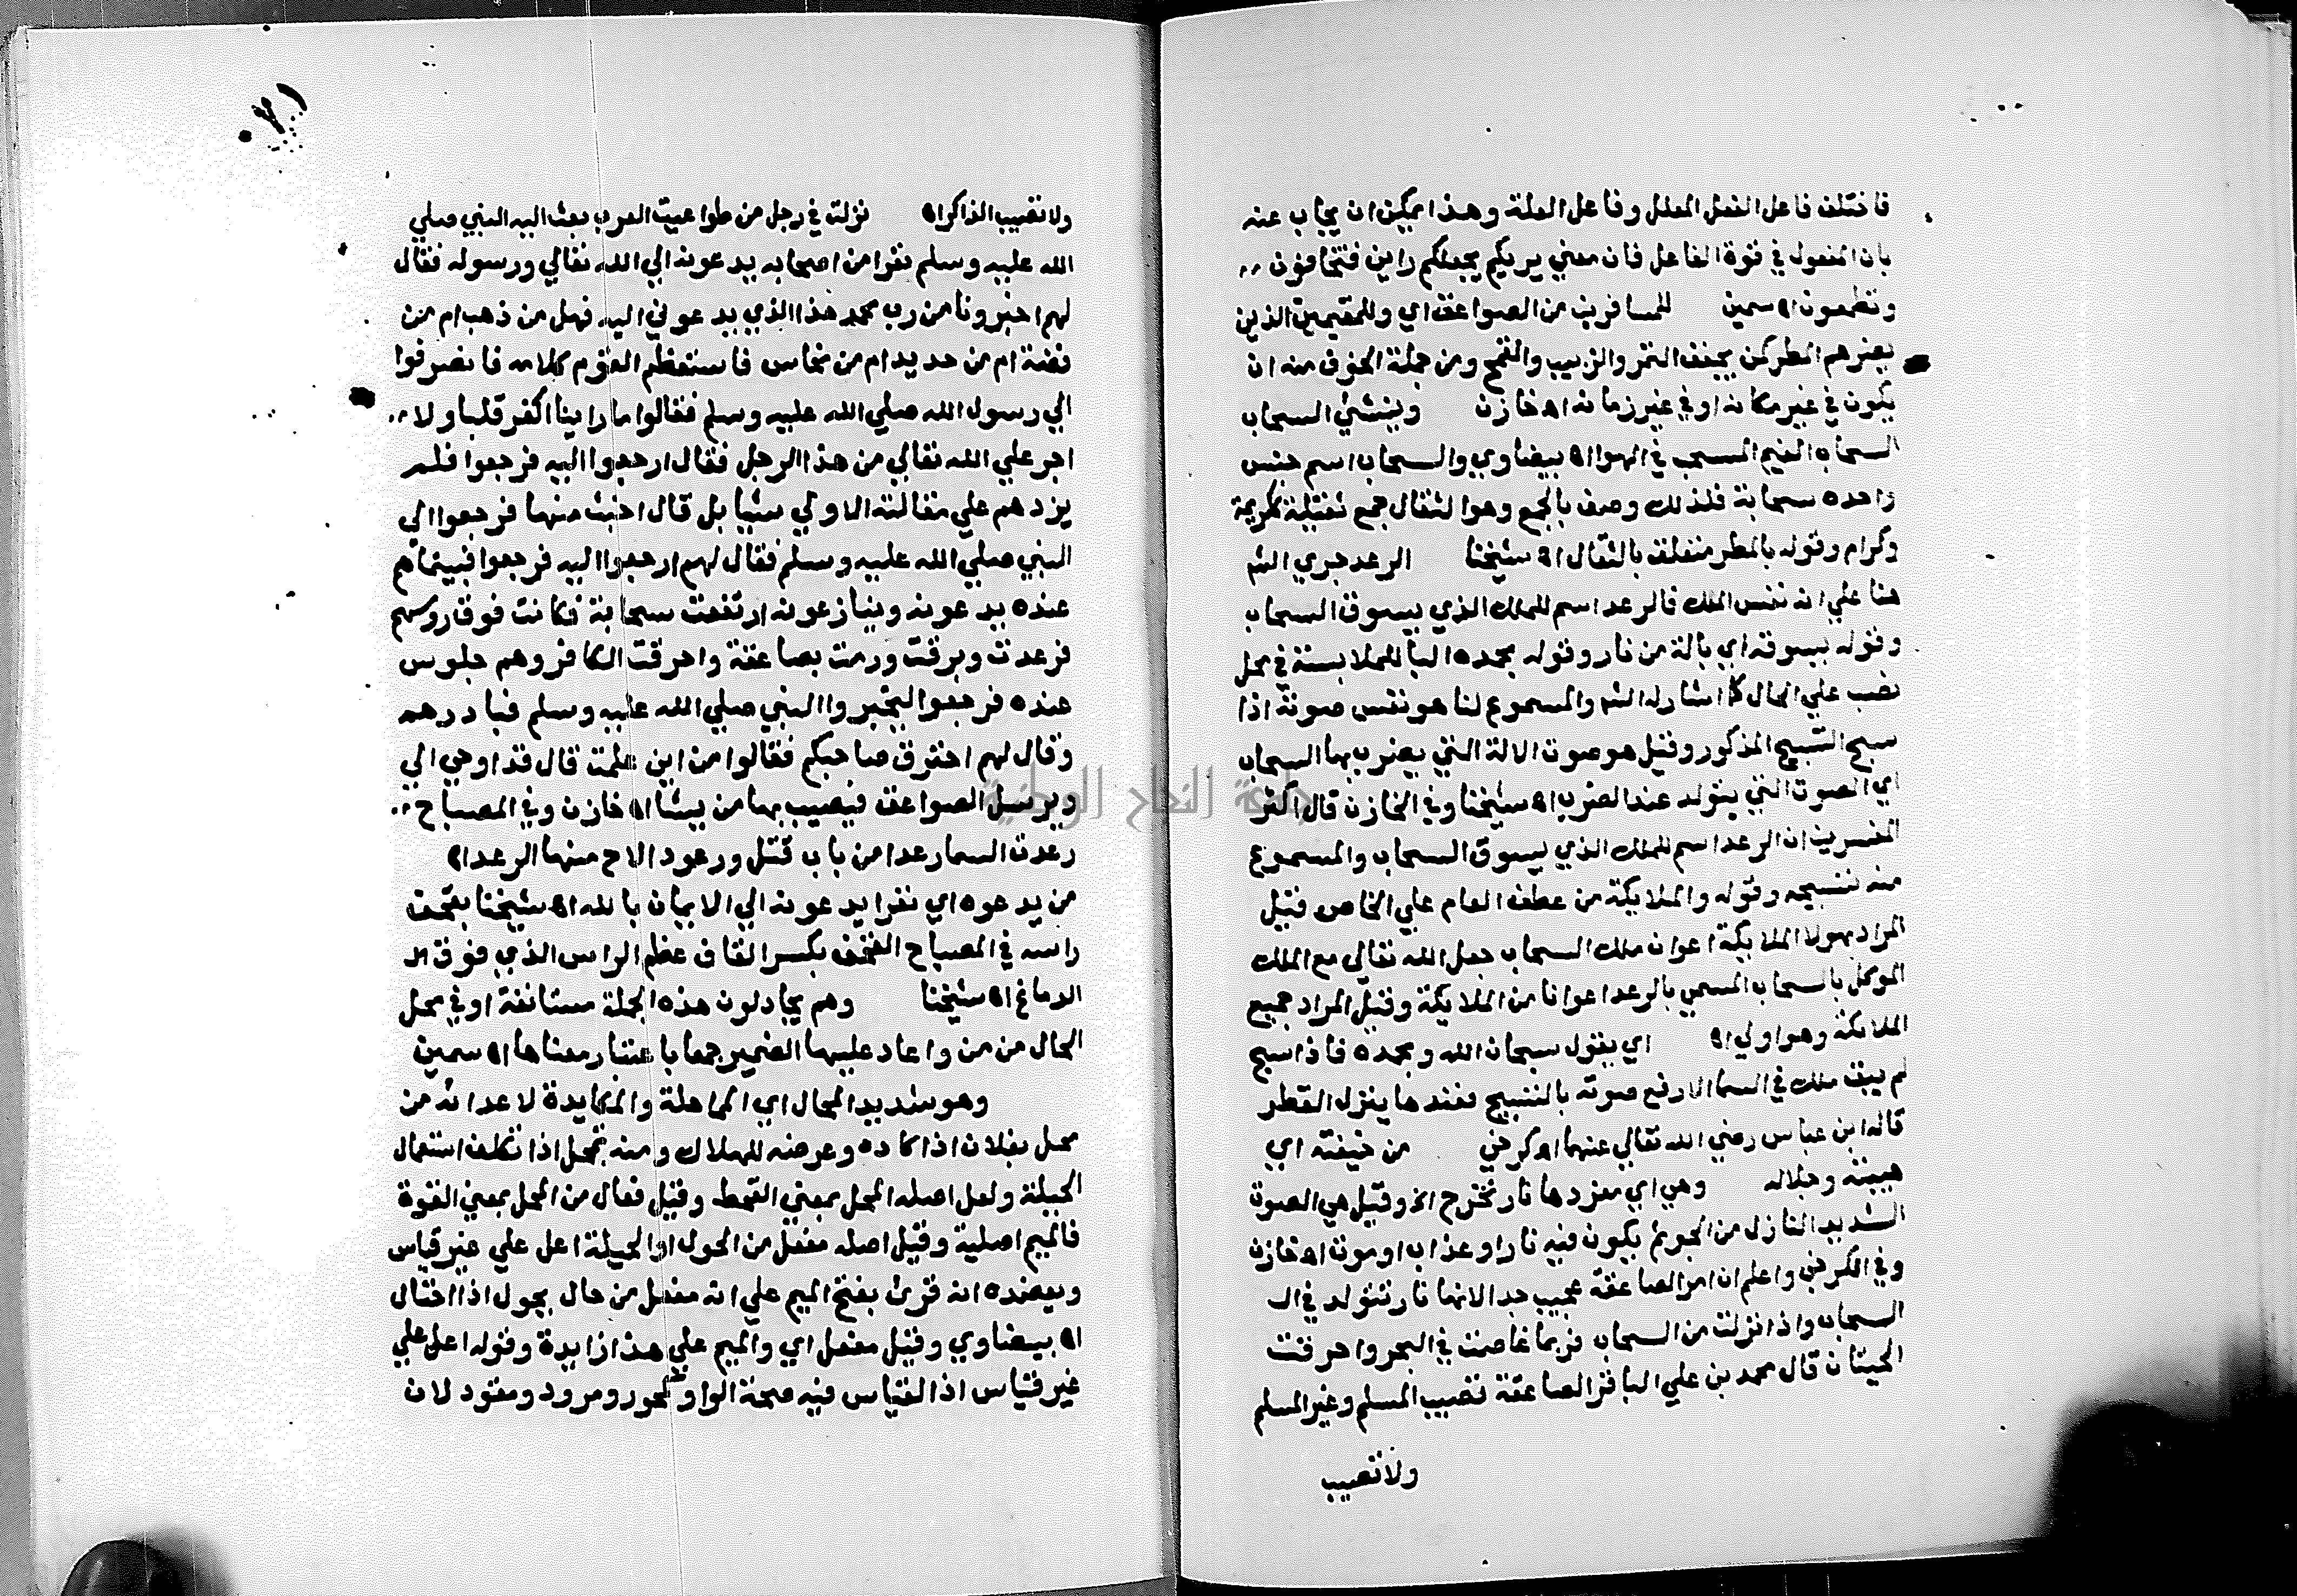 فاختلف فاعل الفعل المعلل وفاعل العلة وهذا يمكن ان يجاب عنه
بان المفعول في قوة الفاعل فان معني يريكم يجعلكم رايين فتخافون
وتطمعون اه سمين للمسافرين من الصواعق اي وللمقيمين الذين
يضرهم المطر كمن يجفف التمر والزبيب والقمح ومن جملة الخوف منه ان
يكون في غير مكانه او في غير زمانه اه خازن وينشئ السحاب
السحاب الغيم المنسحب في الهوا اه بيضاوي والسحاب اسم جنس
واحده سحابة فلذلك وصف بالجمع وهو الثقال جمع ثقيلة ككريمة
وكرام وقوله بالمطر متعلق بالثقال اه شيخنا الرعد جري الشم
هنا علي انه نفس الملك فالرعد اسم للملك الذي يسوق السحاب
وقوله يسوقه اي بآلة من نار وقوله بحمده البا للملابسة في محل
نصب علي الحال كما اشار له الشم والمسموع لنا هو نفس صوته اذا
سبح التسبيح المذكور وقيل هو صوت الالة التي يضرب بها السحاب
اي الصوت التي يتولد عند الضرب اه شيخنا وفي الخازن قال اكثر
المفسرين ان الرعد اسم للملك الذي يسوق السحاب والمسموع
منه تسبيحه وقوله والملايكة من عطف العام علي الخاص فقيل
المراد بهولا الملايكة اعوان ملك السحاب جعل الله تعالي مع الملك
الموكل بالسحاب المسمي بالرعد اعوانا من الملايكة وقيل المراد جميع
الملايكة وهو اولي اه اي يقول سبحان الله وبحمده فاذا سبح
لم يبق ملك في السما الا رفع صوته بالتسبيح فعندها ينزل القطر
قاله ابن عباس رضي الله تعالي عنهما اه كرخي من خيفته اي
هيبته وجلاله وهي اي مفردها نار تخرج الخ وقيل هي الصوت
الشديد النازل من الجو ثم يكون فيه نار او عذاب او موت اه خازن
وفي الكرخي واعلم ان امر الصاعقة عجيب جدا لانها نار تتولد في ال
السحاب واذا نزلت من السحاب فربما غاصت في البحر واحرقت
الحيتان قال محمد بن علي الباقر الصاعقة تصيب المسلم وغير المسلم
ولا تصيب
ولا تصيب الذاكر اه نزلت في رجل من طواغيت العرب بعث اليه النبي صلي
الله عليه وسلم نفرا من اصحابه يدعونه الي الله تعالي ورسوله فقال
لهم اخبرونا من رب محمد هذا الذي يدعوني اليه فهل من ذهب ام من
فضة ام من حديد ام من نحاس فاستعظم القوم كلامه فانصرفوا
الي رسول الله صلي الله عليه وسلم فقالوا ما راينا اكفر قلبا ولا
اجر علي الله تعالي من هذا الرجل فقال ارجعوا اليه فرجعوا فلم
يزدهم علي مقالته الاولي شيا بل قال اخبث منها فرجعوا الي
النبي صلي الله عليه وسلم فقال لهم ارجعوا اليه فرجعوا فبينماهم
عنده يدعونه وينازعونه ارتفعت سحابة فكانت فوق روسهم
فرعدت وبرقت ورمت بصاعقة واحرقت الكافر وهم جلوس
عنده فرجعوا ليخبروا النبي صلي الله عليه وسلم فبادرهم
وقال لهم احترق صاحبكم فقالوا من اين علمت قال قد اوحي الي
ويرسل الصواعق فيصيب بها من يشا اه خازن وفي المصباح
رعدت السما رعدا من باب قتل ورعودا لاح منها الرعد اه
من يدعوه اي نفرا يدعونه الي الايمان بالله اه شيخنا بقحف
راسه في المصباح القحف بكسر القاف عظم الراس الذي فوق ال
الدماغ اه شيخنا وهم يجادلون هذه الجملة مستانفة او في محل
الحال من من واعاد عليها الضمير جمعا باعتبار معناها اه سمين
وهو شديد المحال اي المماحلة والمكايدة لاعدائه من
محل بفلان اذا كاده وعرضه للهلاك ومنه تمحل اذا تكلف استعمال
الحيلة ولعل اصله المحل بمعني القحط وقيل فعال من المحل بمعني القوة
فالميم اصلية وقيل اصله مفعل من الحول او الحيلة اعل علي غير قياس
ويعضده انه قرئ بفتح الميم علي انه مفعل من حال يحول اذا احتال
اه بيضاوي وقيل مفعل اي والميم علي هذا زايدة وقوله اعل علي
غير قياس اذ القياس فيه صحة الواو كمحور ومرود ومقود لان